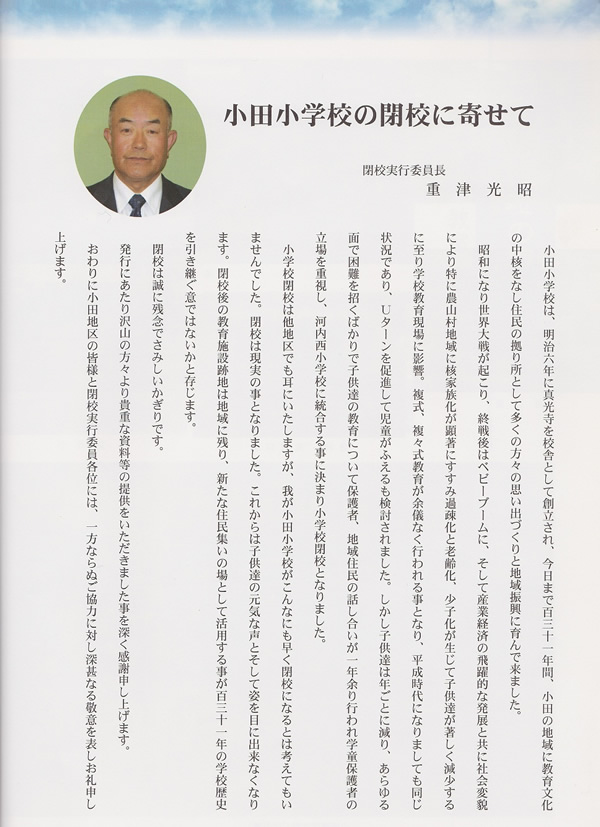 小田小学校の閉校に寄せて
閉校実行委員長
重津光昭
小田小学校は、明治六年に真光寺を校舎として創立され、今日まで百三十一年間、小田の地域に教育文化
の中核をなし住民の拠り所として多くの方々の思い出づくりと地域振興に育んで来ました。
昭和になり世界大戦が起こり、終戦後はベビーブームに、そして産業経済の飛躍的な発展と共に社会変貌
により特に農山村地域に核家族化が顕著にすすみ過疎化と老齢化、少子化が生じて子供達が著しく減少する
に至り学校教育現場に影響。複式、複々式教育が余儀なく行われる事となり、平成時代になりましても同じ
状況であり、Uターンを促進して児童がふえるも検討されました。しかし子供達は年ごとに減り、あらゆる
面で困難を招くばかりで子供達の教育について保護者、地域住民の話し合いが一年余り行われ学童保護者の
立場を重視し、河内西小学校に統合する事に決まり小学校閉校となりました。
小学校閉校は他地区でも耳にいたしますが、我が小田小学校がこんなにも早く閉校になるとは考えてもい
ませんでした。閉校は現実の事となりました。これからは子供達の元気な声とそして姿を目に出来なくなり
ます。閉校後の教育施設跡地は地域に残り、新たな住民集いの場として活用する事が百三十一年の学校歴史
を引き継ぐ意ではないかと存じます。
閉校は誠に残念でさみしいかぎりです。
発行にあたり沢山の方々より貴重な資料等の提供をいただきました事を深く感謝申し上げます。
おわりに小田地区の皆様と閉校実行委員各位には、一方ならぬご協力に対し深甚なる敬意を表しお礼申し
上げます。